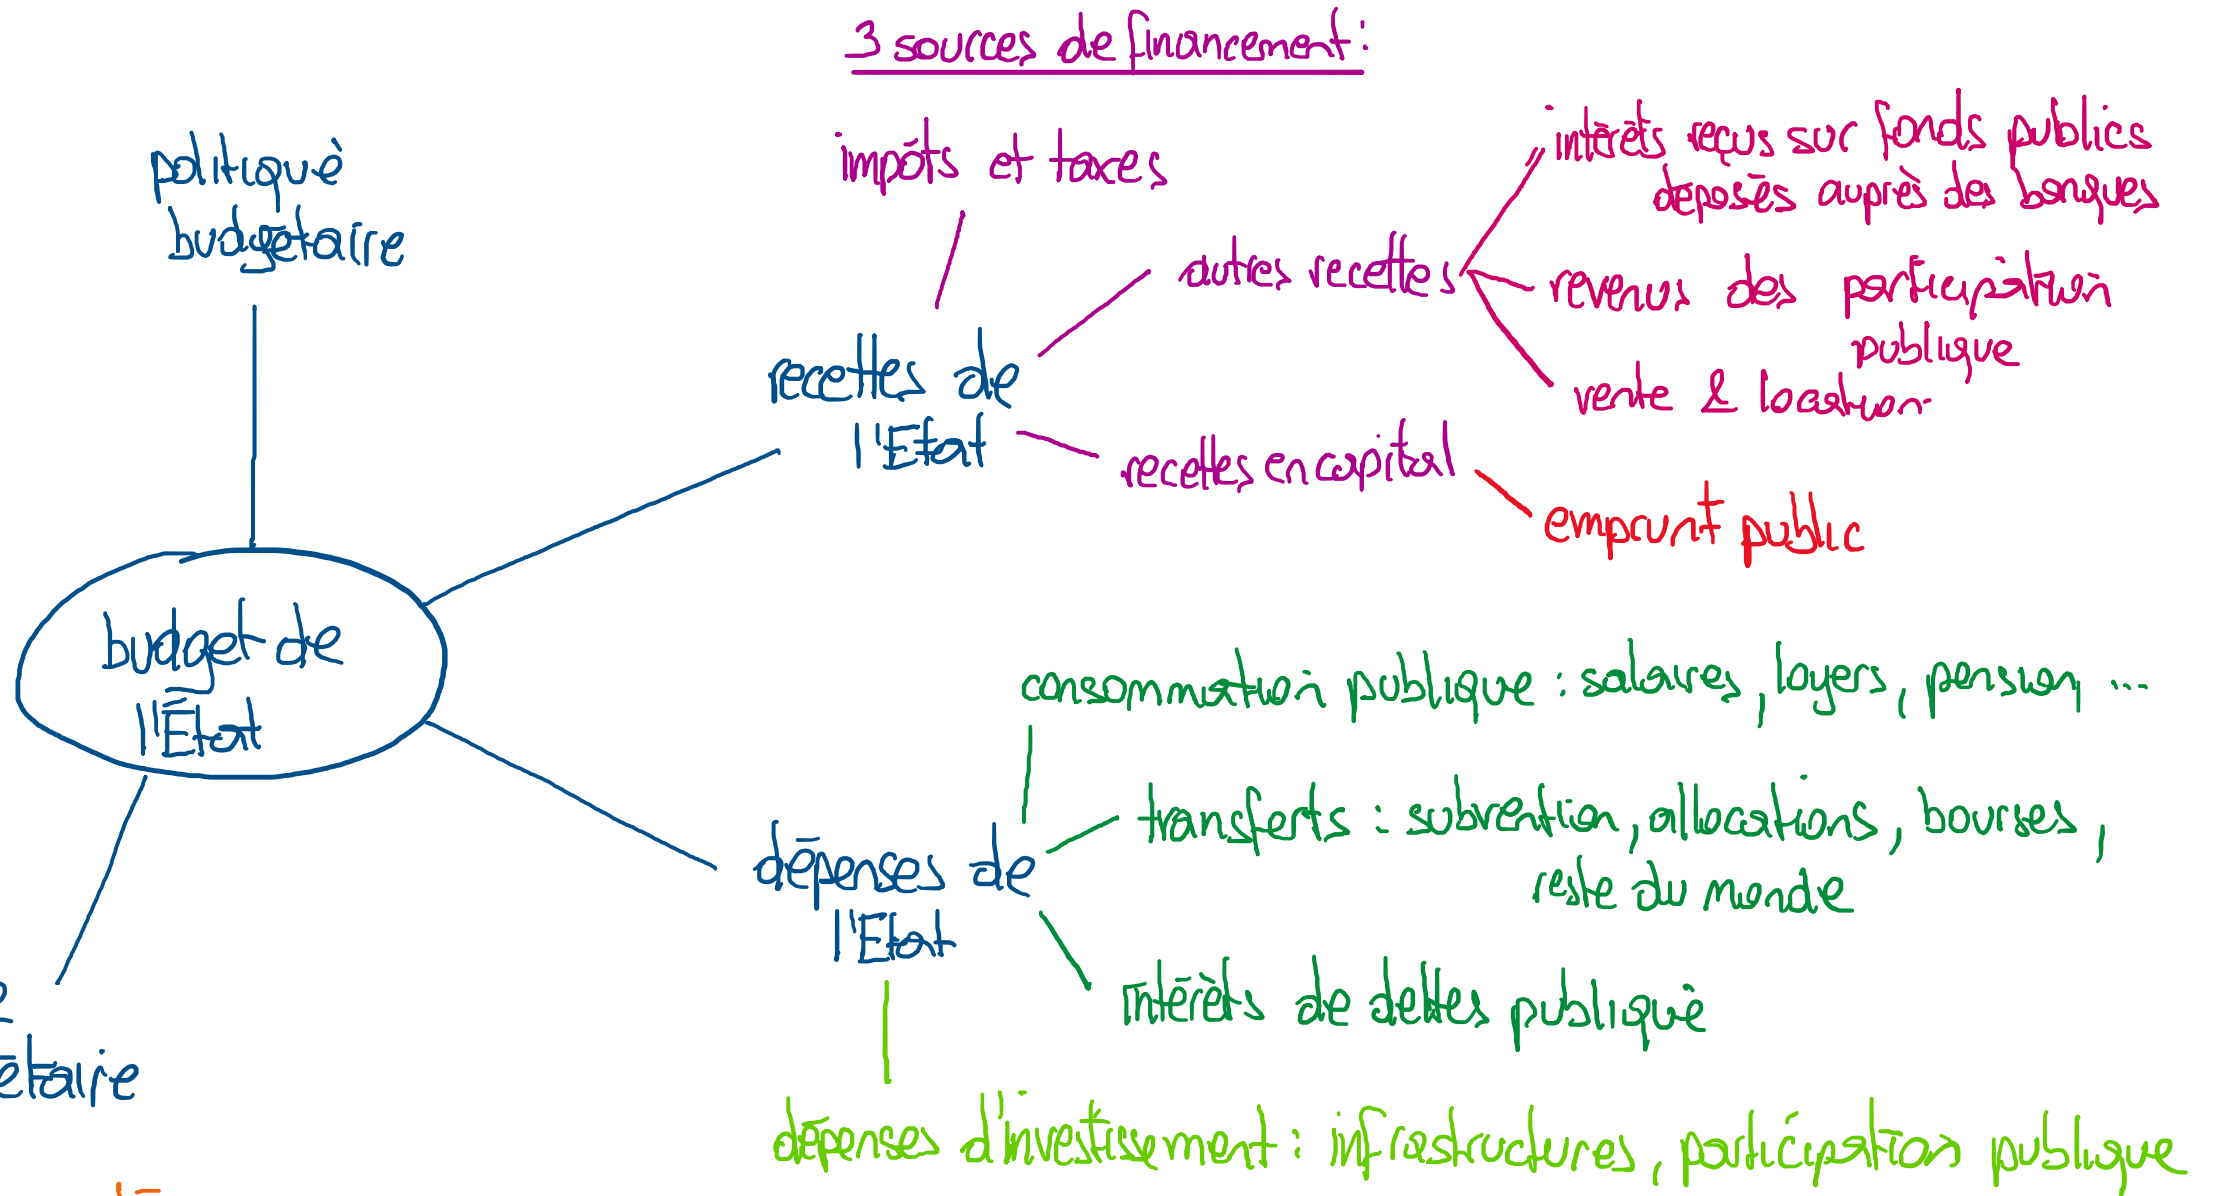 3 sources de financement :
politique
budgétaire
impôts et taxes
autres recettes
intérêts reçus sur fonds publics
déposés auprès des banques
revenus des participation
publique
vente & location
recettes de
l'Etat
recettes en capital
emprunt public
budget de
l'État
consommation publique : salaires, loyers, pension, ...
transferts : subvention, allocations, bourses,
reste du monde
dépenses de
l'Etat
intérêts de dettes publique
étaire
dépenses d'investissement : infrastructures, participation publique